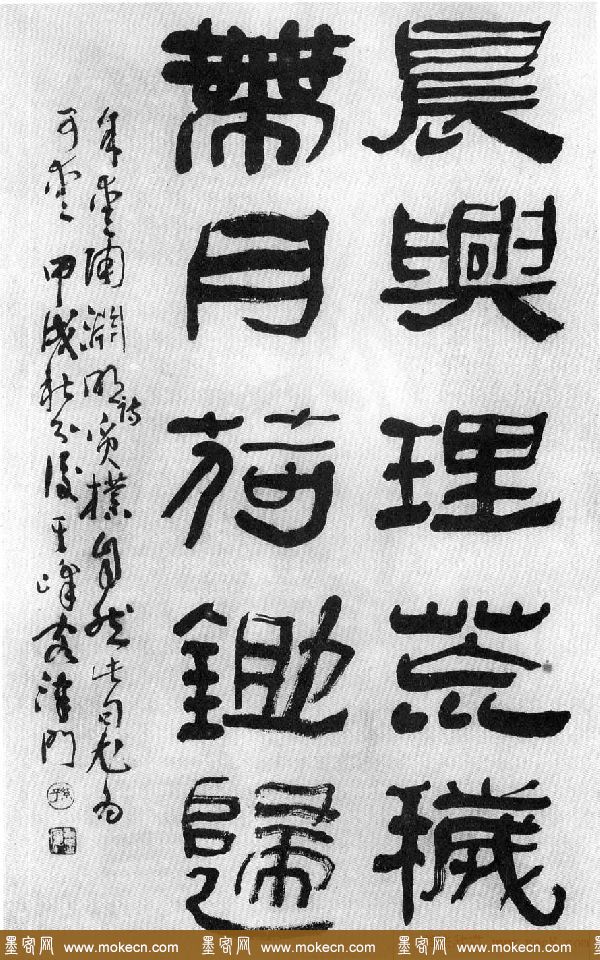 晨興理荒穢
帶月荷鋤歸
愛陶淵明詩質樸自然此句尤為
可愛 甲戌秋分後其峰客津門
墨客网 www.mokecn.com 墨客网 www.mokecn.com 墨客网 www.mokecn.com